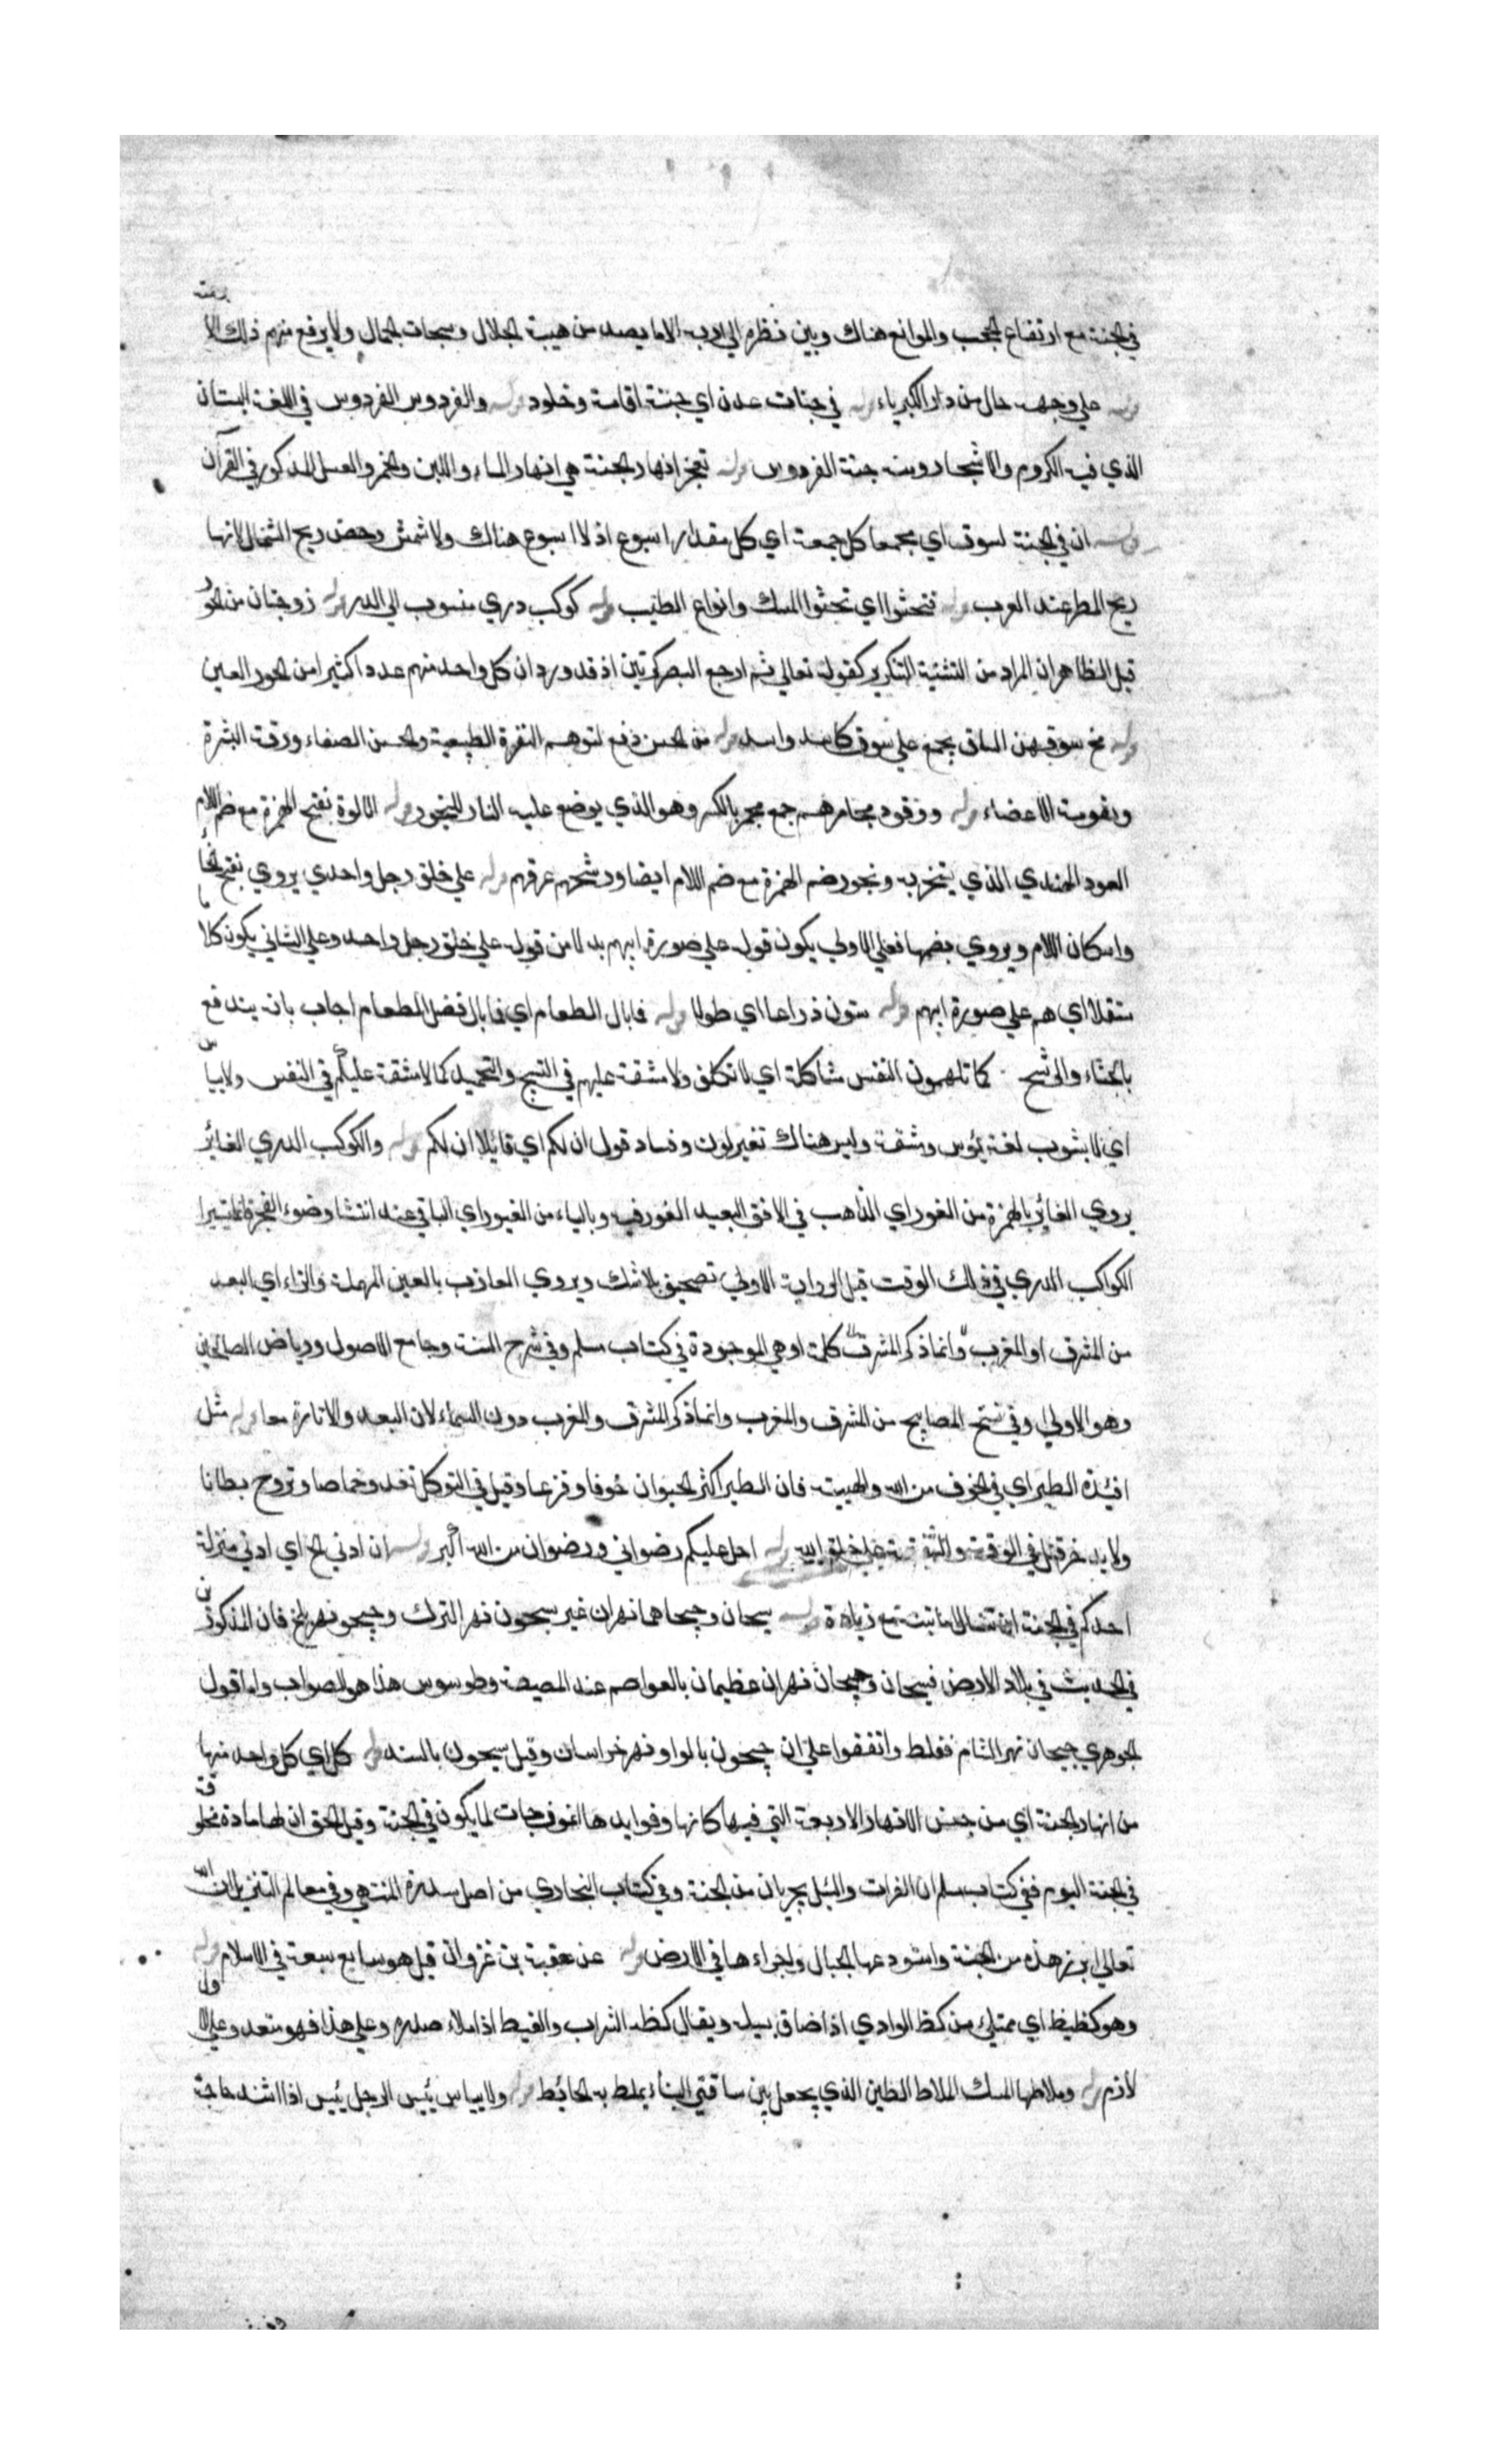 في الجنة مع ارتفاع الحجب والموانع هناك وبين نظره الي ربه الا ما يصد من هيبة الجلال وسبحات الجمال ولا يرفع منهم ذلك الا برحمته
قوله علي وجهه حال من دار الكبرياء قوله في جنات عدن اي جنة اقامة وخلود قوله والفردوس الفردوس في اللغة البستان
الذي فيه الكروم والاشجار ومنه جنة الفردوس قوله تفجر انهار الجنة هي انهار الماء واللبن والخمر والعسل المذكور في القرآن
قوله ان في الجنة لسوقا اي مجمعا كل جمعة اي كل مقدار اسبوع اذ لا اسبوع هناك ولا شمس وخص ريح الشمال لانها
ريح المطر عند العرب قوله فتحثوا اي تحثوا المسك وانواع الطيب قوله كوكب دري منسوب الي الدر قوله زوجتان من الحور
قيل الظاهر ان المراد من التثنية التكرير كقوله تعالي ثم ارجع البصر كرتين اذ قد ورد ان كل واحد منهم عددا كثيرا من الحور العين
قوله مخ سوقهن الساق يجمع علي سوق كاسد واسد قوله من الحسن دفع لتوهم النفرة الطبيعية والحسن الصفاء ورقة البشرة
ونعومة الاعضاء قوله ووقود مجامرهم جمع مجمر بالكسر وهو الذي يوضع عليه النار للبخور قوله الالوة بفتح الهمزة مع ضم اللام
العود الهندي الذي يتبخر به ويجوز ضم الهمزة مع ضم اللام ايضا ورشحهم عرقهم قوله علي خلق رجل واحد يروي بفتح الخاء
واسكان اللام ويروي بضمها فعلي الاولي يكون قوله علي صورة ابيهم بدلا من قوله علي خلق رجل واحد وعلي الثاني يكون كلاما
مستقلا اي هم علي صورة ابيهم قوله ستون ذراعا اي طولا قوله فما بال الطعام اي فما بال فضل الطعام اجاب بانه يندفع
بالجشاء والرشح كما تلهمون النفس مشاكلة اي لا تكلف ولا مشقة عليهم في التسبيح والتحميد كما لا مشقة عليكم في النفس ولا يباس
اي لا يشوب نعمه بؤس ومشقة وليس هناك تغير لون وفساد قوله ان لكم اي قائلا ان لكم قوله والكوكب الدري الغائر
يروي الغائر بالهمزة من الغور اي الذاهب في الافق البعيد الغور فيه وبالياء من الغبور اي الباقي عند انتشار ضوء الفجر فانما يستنير
الكواكب الدري في ذلك الوقت قيل الرواية الاولي تصحيف بلا شك ويروي العازب بالعين المهملة والزاء اي البعد
من المشرق او المغرب وانما ذكر المشرق كلمة او هي الموجودة في كتاب مسلم وفي شرح السنة وجامع الاصول ورياض الصالحين
وهو الاولي وفي نسخ المصابيح من المشرق والمغرب وانما ذكر المشرق والمغرب دون السماء لان البعد والانارة معا قوله مثل
افئدة الطير اي في الخوف من الله والهيبة فان الطير اكثر الحيوان خوفا وفزعا وقيل في التوكل تغدو خماصا وتروح بطانا
احل عليكم رضواني ورضوان من الله أكبر قوله ان ادني الخ اي ادني منزلة
احدكم في الجنة مع زيادة قوله سيحان وجيحان هما نهران غير سيحون نهر الترك وجيحون نهر بلخ فان المذكورين
في الحديث في بلاد الارض فسيحان وجيحان نهران عظيمان بالعواصم عند المصيصة وطرسوس هذا هو الصواب واما قول
الجوهري جيحان نهر الشام فغلط واتفقوا علي ان جيحون بالواو نهر خراسان وقيل سيحون بالسند قوله كل اي كل واحد منها
من انهار الجنة اي من جنس الانهار الاربعة التي فيها كانها وفوايدها انموذجات لما يكون في الجنة وقيل الحق ان لها مادة مخلوقة
في الجنة اليوم ففي كتاب مسلم ان الفرات والنيل يجريان من الجنة وفي كتاب البخاري من اصل سدرة المنتهي وفي معالم التنزيل ان الله
تعالي انزل هذه من الجنة واستودعها الجبال واجراءها في الارض قوله عن عقبة بن غزوان قيل هو سابع سبعة في الاسلام قوله
وهو كظيظ اي ممتلئ من كظ الوادي اذا ضاق بسيله ويقال كظه الشراب والغيظ اذا ملاء صدره وعلي هذا فهو متعد وعلي الاول
لازم قوله وملاطها المسك الملاط الطين الذي يجعل بين ساقتي البناء يملط به الحائط قوله ولا يباس بئس الرجل يبئس اذا اشتد حاجة